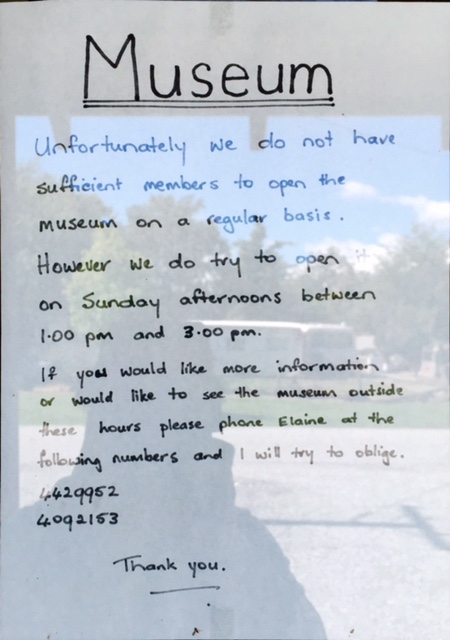 Museum
Unfortunately we do not have
sufficient members to open the
museum on a regular basis.
However we do try to open it
on Sunday afternoons between
1.00 pm and 3.00 pm.
If you would like more information
or would like to see the museum outside
these hours please phone Elaine at the
following numbers and I will try to oblige.
4429952
4092153
Thank you.